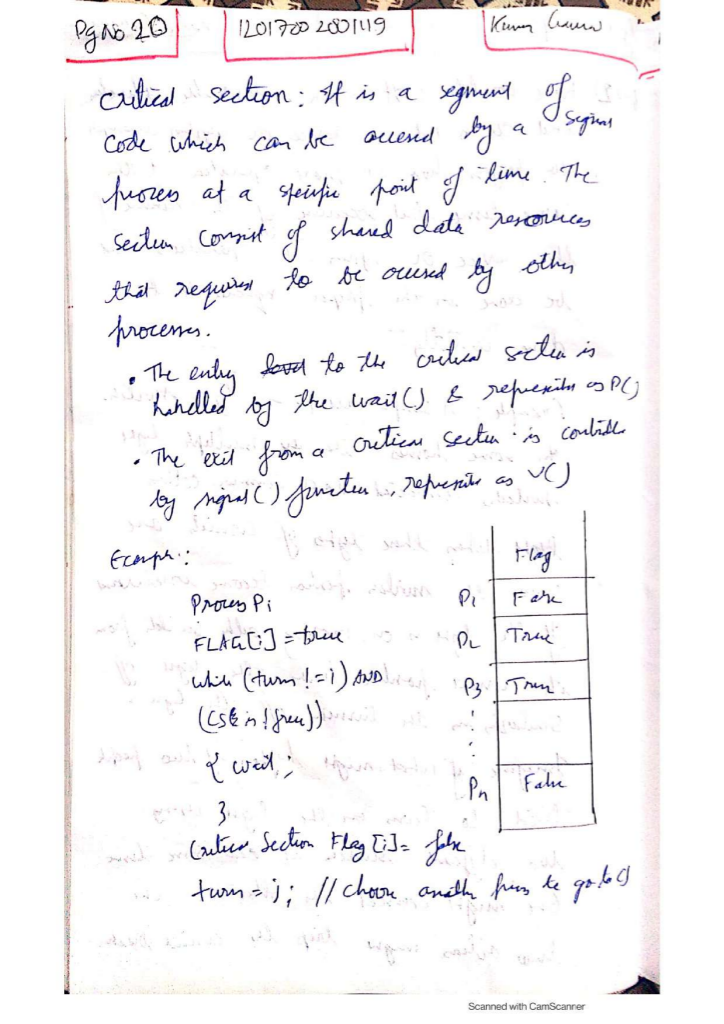 Pg No 20
12017002001119
Critical section: It is a segment of
code which can be accessed by a signal
process at a specific point of time. The
section consist of shared data resources
that requires to be accessed by other
processes.
• The entry to the critical section is
hahdled by the wait() & represents as P()
• The exit from a critical section is controlle
by signal() function, represents as V()
Example:
Process Pi
FLAG[i] = true
while (turn != i) AND
(CS is ! free))
{ wait;
}
Critical Section Flag [i] = false
turn = j; // choose another process to go to CS
Flag
P1 False
P2 True
P3 True
Pn False
Scanned with CamScanner